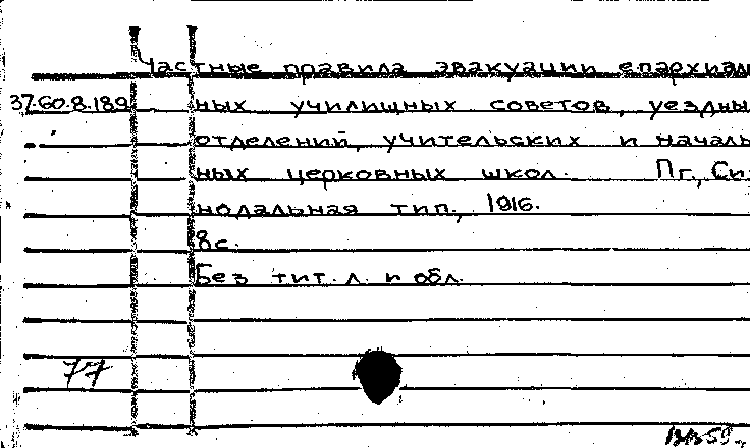 Частные правила эвакуации епархиаль
37.60.8.189 ных училищных советов, уездны
отделений, учительских и началь
ных церковных школ. Пг., Си-
нодальная тип., 1916.
8с.
Без тит. л. и обл.
77